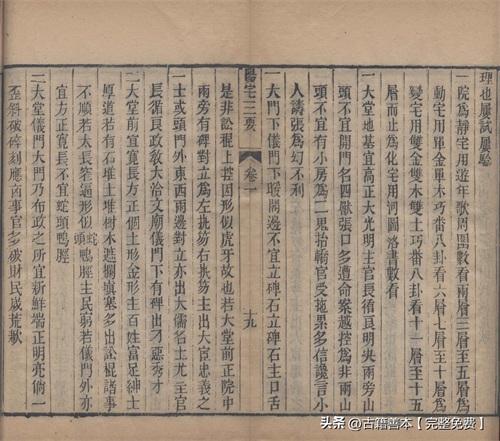 理也屢試屢驗
一院爲靜宅用遊年歌周圍數看兩層三層至五層爲
動宅用單金單木巧番八卦看六層七層至十層爲
變宅用雙金雙木雙土巧番八卦看十一層至十五
層而止爲化宅用河圖洛書數看
一大堂地基宜高正大光明主官長循良明決兩旁山
頭不宜開門名四獸張口多遭命案越控爲非兩山
頭不宜有小房爲二鬼抬轎官受拖累多信讒言小
人譸張爲幻不利
一大門下儀門下暖閣邊不宜立碑石立碑石主口舌
陽宅三要
卷一
十九
是非訟棍上客因形似虎牙故也若大堂前正院中
兩旁有碑對立爲左執笏右執笏主出大宦忠義之
士或頭門外東西兩邊對立亦出大儒名士尤主官
長循良政敎大洽文廟儀門下有碑出刁惡秀才
一大堂前宜寬長方正個土形金形主百姓富足紳士
厚道若有石堆土堆樹木遮攔塡塞多出訟棍諸事
不順若太長窄逼形似蛇頭鴨脛主民弱若儀門外亦
宜方正寬長不宜蛇頭鴨脛
一大堂儀門大門乃布政之所宜新鮮端正明亮倘一
歪斜破碎刻應凶事官多破財民歲荒歉
头条 @古籍善本【完整免费】